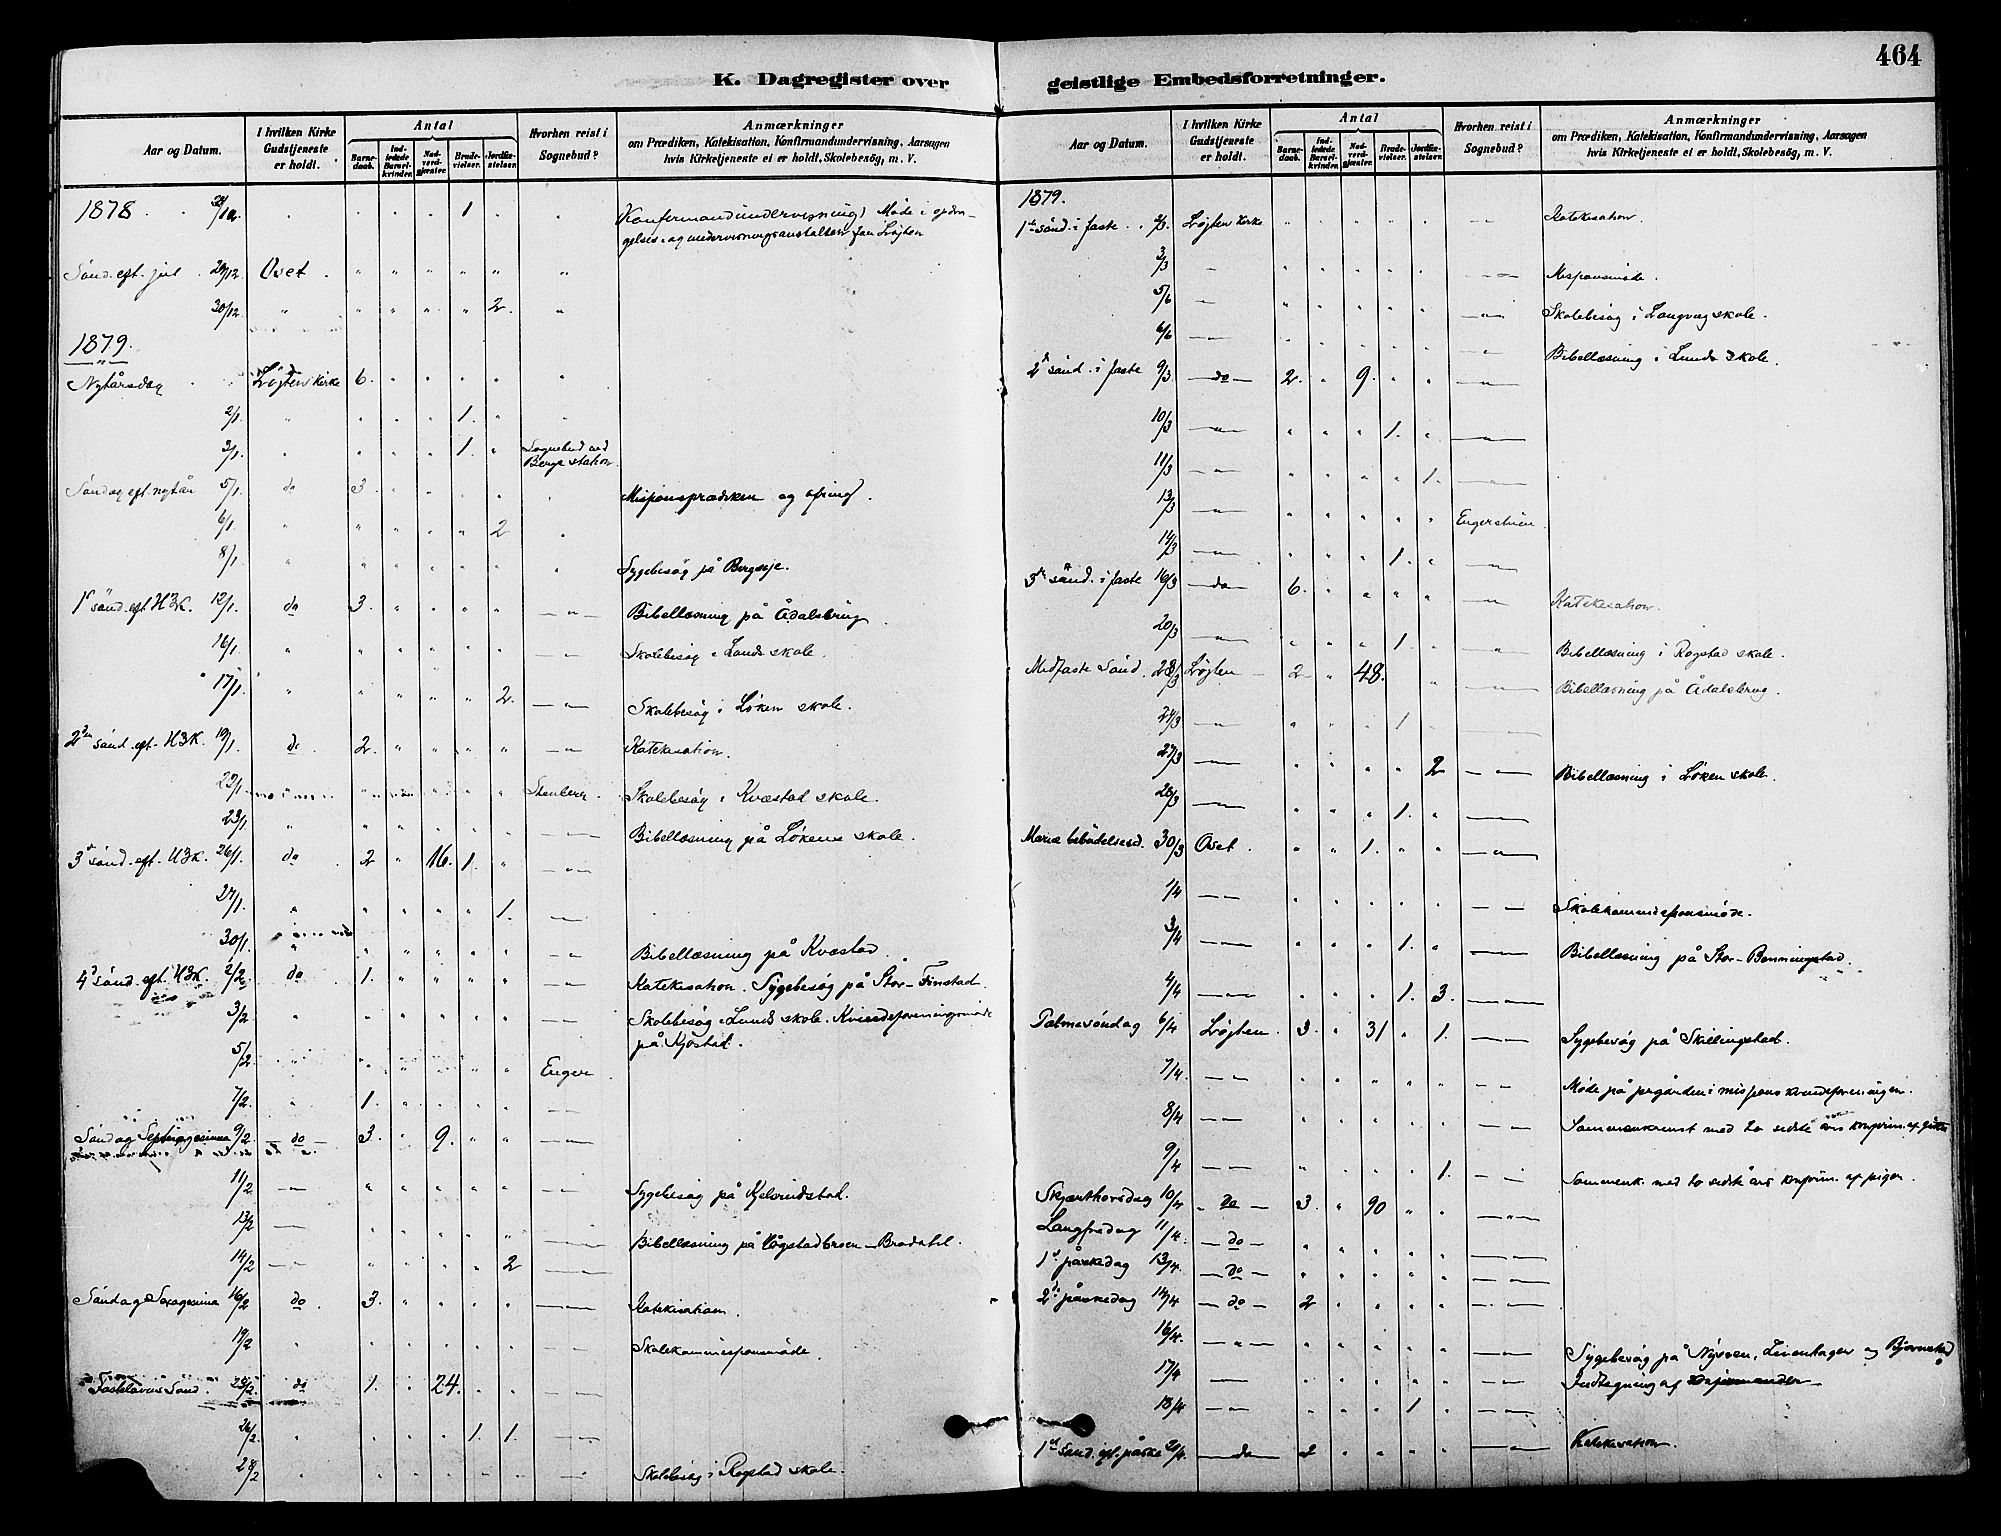 464
K. Dagregister over
geistlige Embedsforretninger.
Aar og Datum.
I hvilken Kirke Gudstjeneste er holdt.
Antal
Barnedaab.
Indledede Barselkvinder.
Nadverdgjæster.
Brudevielser.
Jordfæstelser.
Hvorhen reist i Sognebud?
Anmærkninger
om Prædiken, Katekisation, Konfirmandundervisning, Aarsagen
hvis Kirketjeneste ei er holdt, Skolebesög, m. V.
1878 " 1 " "
Sönd. eft. jul 29/12 Ovet " " " " " "
30/12 " " " " " 2 "
1879
Nytårsdag Løjten Kirke 6 " " " " "
2/1 " " " " 1. " "
3/1 " " " " 1. " Sognebud ved
Berge station
Söndag eft. nytår 5/1 do 3 " " " " " Misjonsprædiken og ofring.
6/1 " " " " " 2 "
8/1 " " " " " " " Sygebesög på Bergseje.
1 sönd. eft H3K. 12/1 do 3. " " " " — " — Bibellæsning på Ådalsbrug
16/1 " " " " " " — " — Skolebesög i Lunds skole.
17/1 " " " " " 2. — " — Skolebesög i Løken skole.
2 sönd. eft. H3K. 19/1 do 2. " " " " — " — Katekisation.
22/1 " " " " " Stenberg. Skolebesög i Kvæstad skole.
23/1 " " " " " " — " — Bibellæsning på Løkens skole.
3 sönd. eft. H3K. 26/1 do 2 " 16. 1. " — " —
27/1 " " " " " 1. — " —
30/1 " " " " " " — " — Bibellæsning på Kvæstad.
4 sönd. eft. H3K. 2/2 do 1. " " " " — " — Katekisation. Sygebesög på Stor-Finstad.
3/2 " " " " " " — " — Skolebesög i Lunds skole. Kvindeforeningsmöde
på Kjøstad.
5/2 " " " " " " Enger
7/2 " 1. " " " " — " —
Söndag Septuagesima 9/2 — do — 3. " 9. " " — " —
11/2 — " — " " " " " — " — Sygebesög på Kjelsrudstad.
13/2 — " — " " " " " — " — Bibellæsning på
14/2 — " — " " " " 2 — " —
Söndag Sexagesima 16/2 do 3. " " " " — " — Katekisation.
19/2 " " " " " " — " — Skolekommisjonsmöde.
Fastelavns Sönd. do 1. " 24. " " — " —
26/2 " " " " 1. 1. — " —
28/2 " " " " " " — " — Skolebesög i Rogstad skole.
Aar og Datum.
I hvilken Kirke Gudstjeneste er holdt.
Antal
Barnedaab.
Indledede Barselkvinder.
Nadverdgjæster.
Brudevielser.
Jordfæstelser.
Hvorhen reist i Sognebud?
Anmærkninger
om Prædiken, Katekisation, Konfirmandundervisning, Aarsagen
hvis Kirketjeneste ei er holdt, Skolebesög, m. V.
1879.
1 sönd. i faste Løjten Kirke " " " " " — " — Katekisation.
3/3 — " — " " " " " — " — Misjonsmöde.
5/6 — " — " " " " " — " — Skolebesög i Langvag skole.
6/6 — " — " " " " " — " — Bibellæsning i Lunds skole.
2 sönd. i faste 9/3 — do — 2. " 9. " " — " —
10/3 — " — " " " 1. " — " —
11/3 — " — " " " " 1. — " —
13/3 — " — " " " " " Engerstuen.
14/3 — " — " " " 1. " — " —
3 sönd. i faste 16/3 — do — 6. " " " " — " — Katekisation.
20/3 — " — " " " 1. " — " — Bibellæsning i Rogstad skole.
Midfaste Sönd. Løjten 2 " 48. " — " — Bibellæsning på Ådalsbrug.
24/3 — " — " " " 1 " — " —
27/3 — " — " " " " 2 — " — Bibellæsning i Løken skole.
28/3 — " — " " " 1. " — " —
Mariæ bebudelsesd. 30/3 Ovet. " " 1. " " — " —
1/4 — " — " " " " " — " — Skolekommisjonsmöde.
3/4 — " — " " " 1. " — " — Bibellæsning på Stor-Benningstad.
4/4 — " — " " " 1. 3. — " —
Palmesöndag 6/4 Løjten. 3. " 31 " 1. — " — Sygebesög på Skillingstad.
7/4 — " — " " " " " — " — Møde på prgården i misjons kvindeforeningen.
8/4 — " — " " " " " — " — Sammenkomst med to sidste års konfirm. af gutter
9/4 — " — " " " " 1. — " — Sammenk. med to sidste års konfirm. af piger.
Skjærthorsdag 10/4 — do — 3. " 90 " " — " —
Langfredag 11/4 — do — " " " " " — " —
1 påskedag 13/4. — do — " " " " " — " —
2 påskedag 14/4 — do — 2 " " " " — " —
16/4. — " — " " " " " — " — Sygebesög på Nysven, og Bjørnstad
17/4 — " — " " " " " — " — Indtegning af
18/4 — " — " " " " 1 — " —
1 sönd. eft. påske 20/4. — do — 2 " " " " — " — Katekisation.